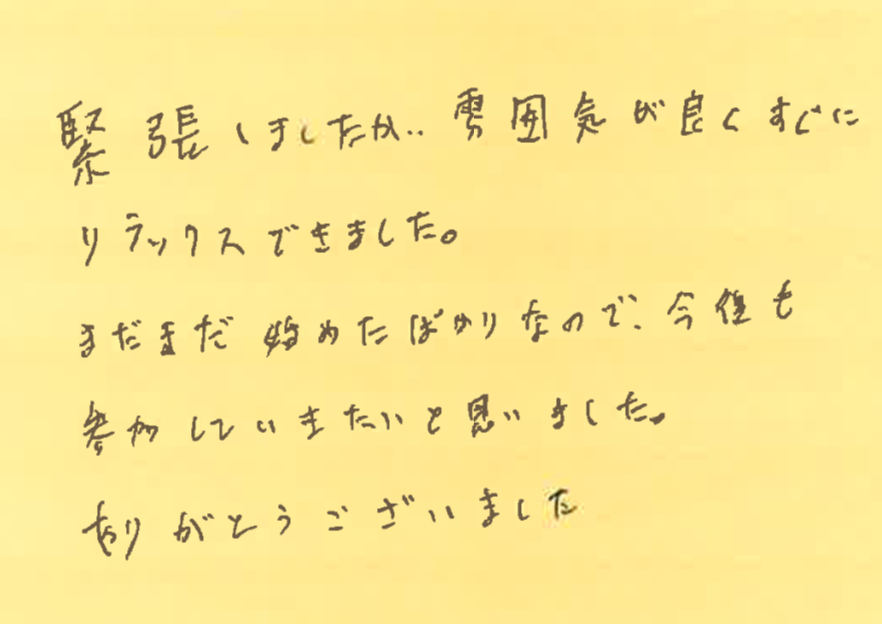 緊張しましたが、雰囲気が良くすぐに
リラックスできました。
まだまだ始めたばかりなので、今後も
参加していきたいと思いました。
ありがとうございました